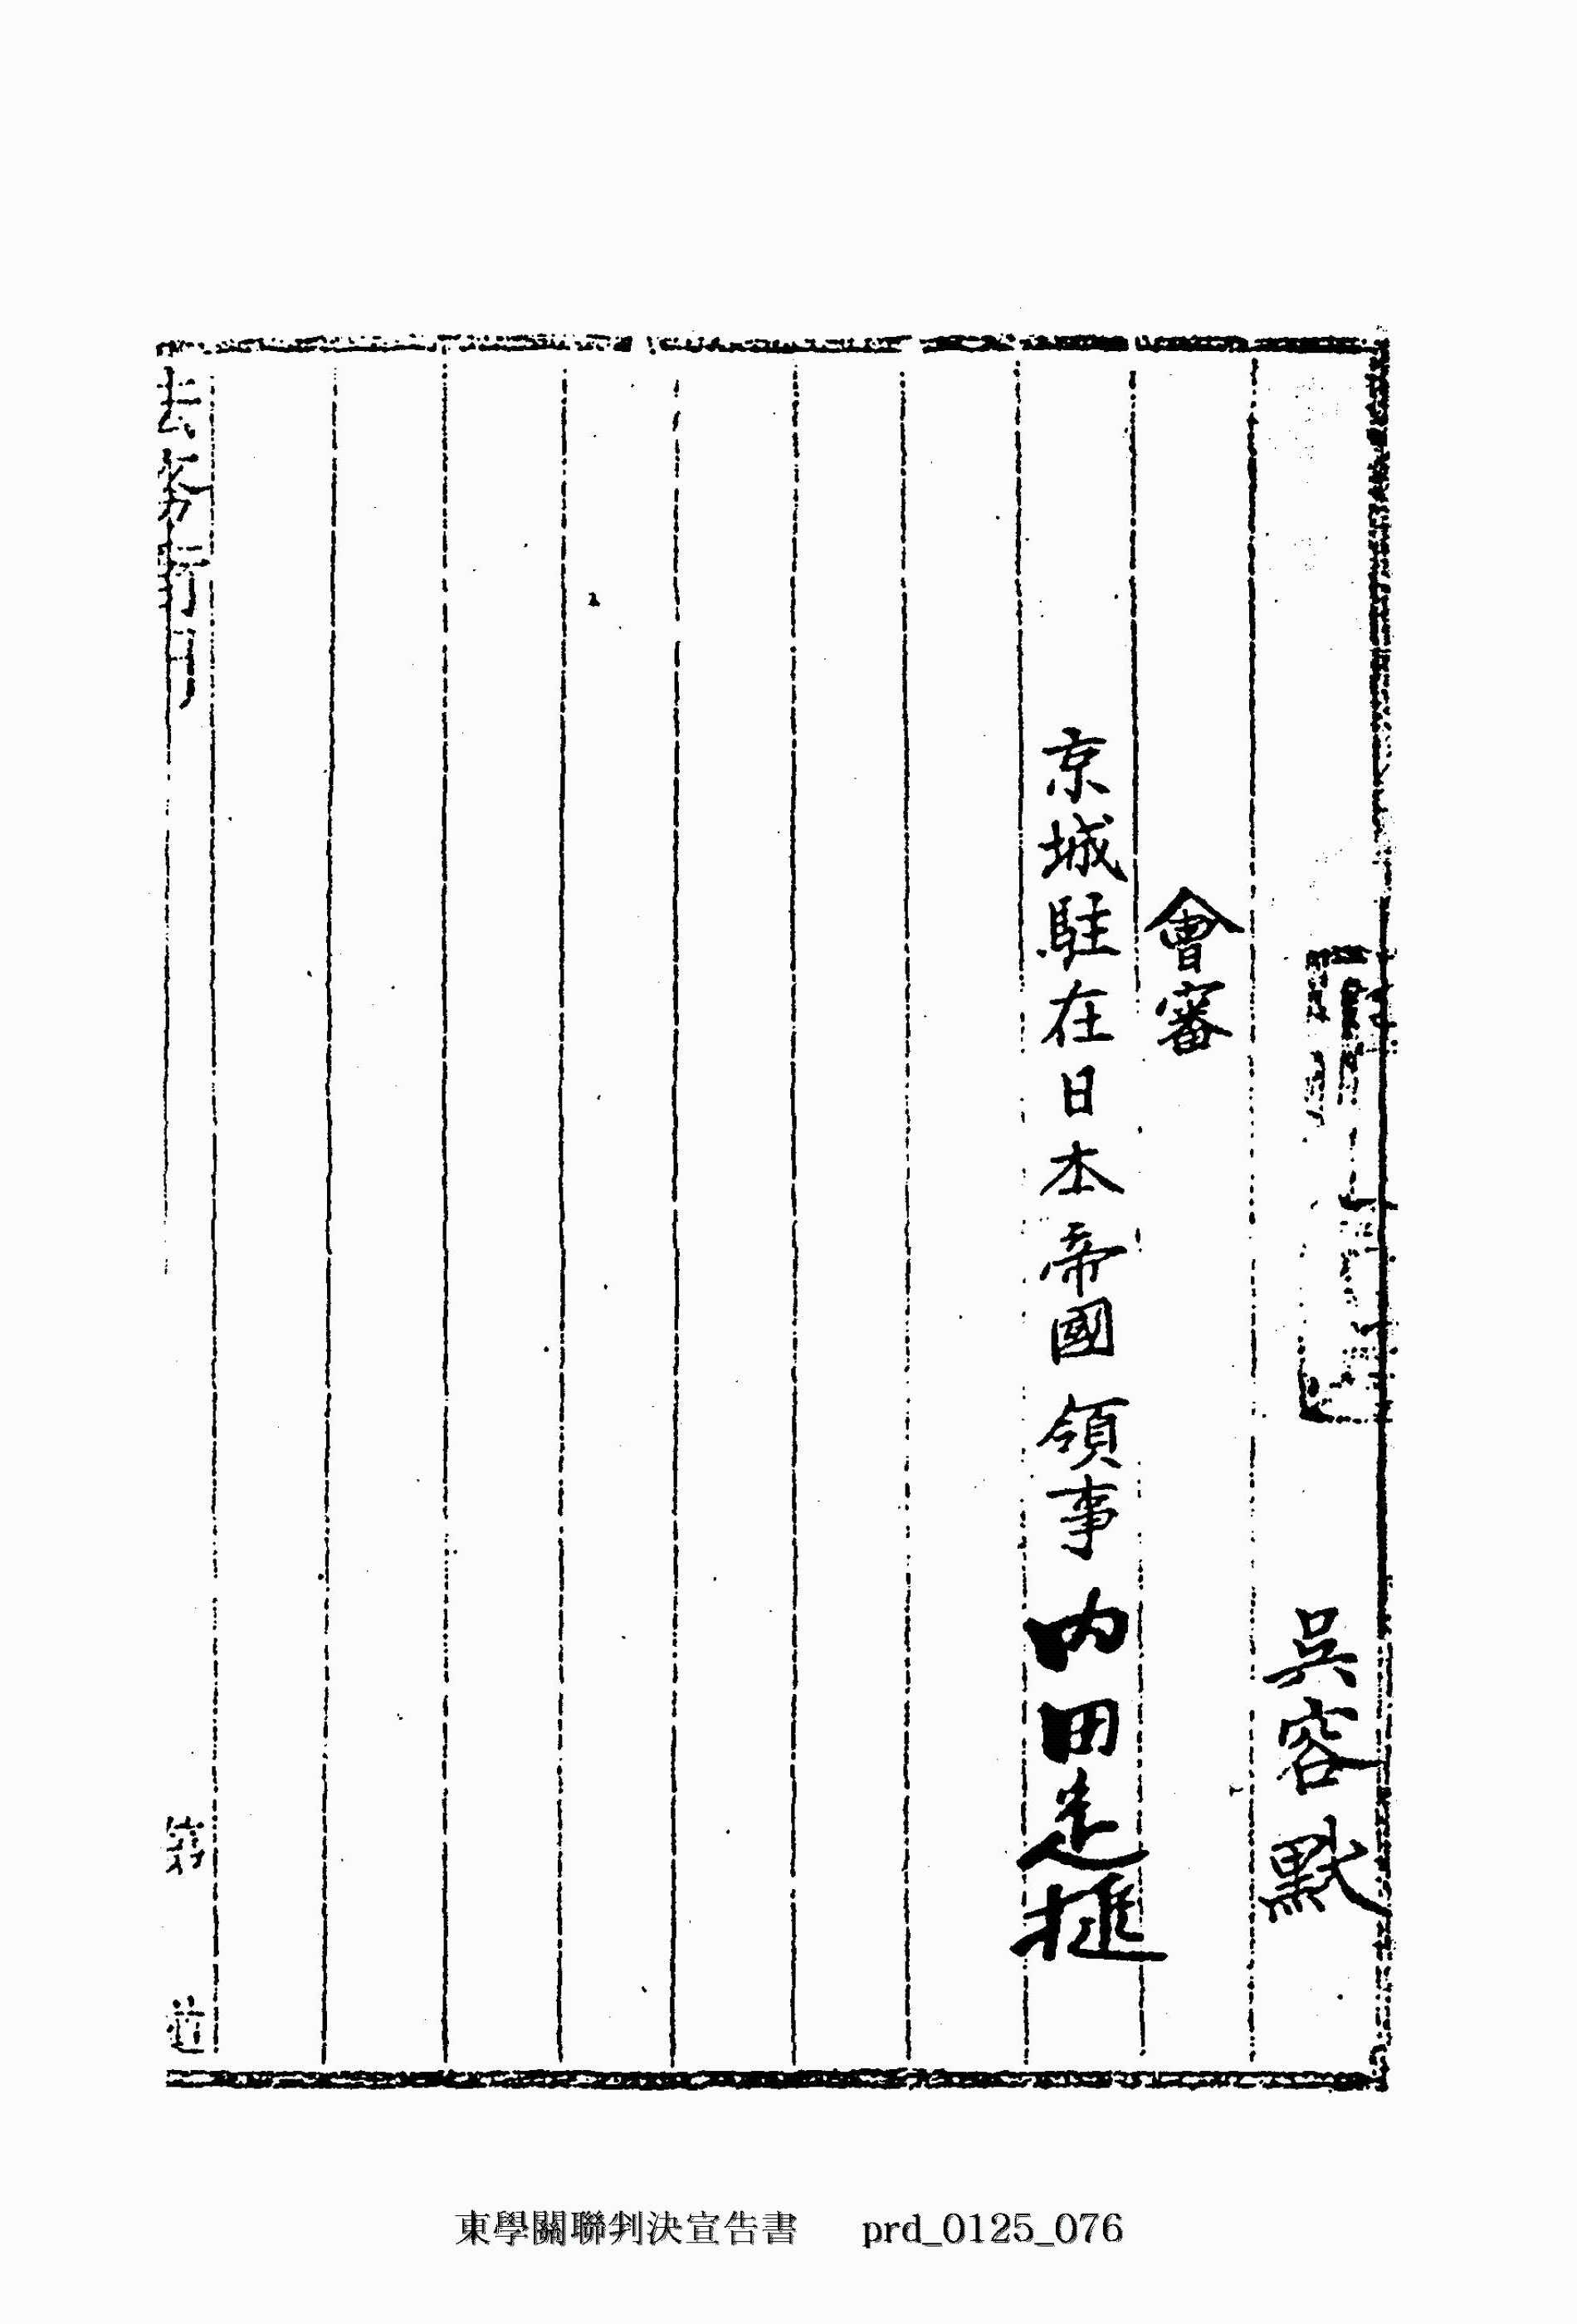 吳容默
會審
京城駐在日本帝國領事內田定槌
法務衙門
東學關聯判決宣告書 prd_0125_076